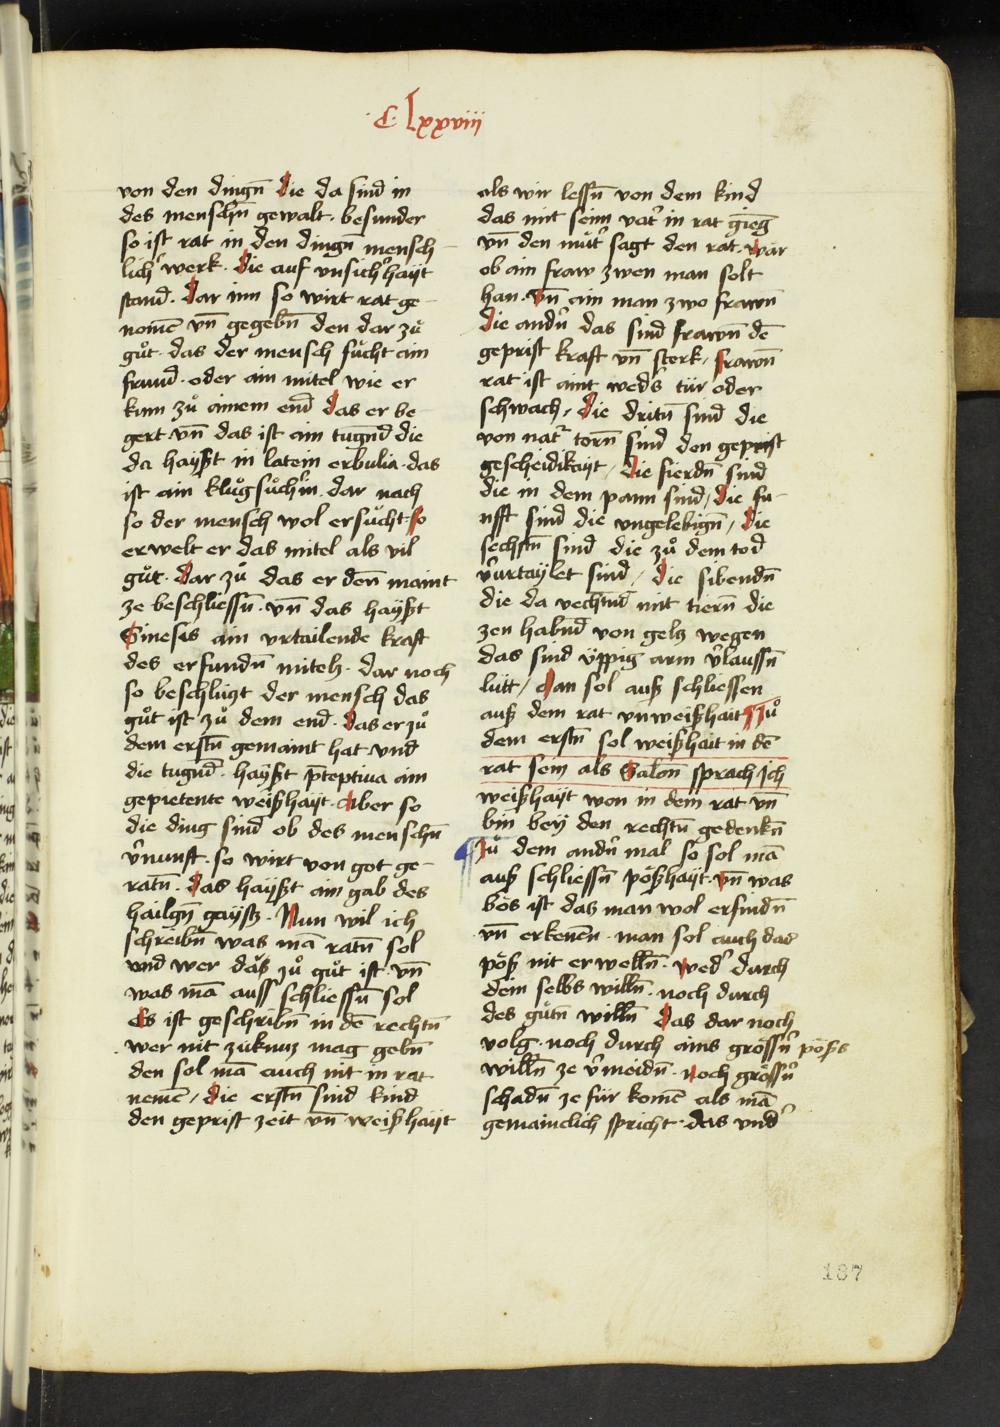 C lxxviii
von den dingn̄ die da sind in
des menschn̄ gewalt · besunder
so ist rat in den dingn̄ mensch
lichr̄ werk · die auf vnsichr̄hayt
stand · Dar inn so wirt rat ge-
nomē vn̄ gegebn̄ den dar zů
gůt · das der mensch sůcht ain
fraud · oder ain mitel wie er
kum zů ainem end das er be
gert vn̄ das ist ain tugn̄d die
da hayßt in latein erbulia · das
ist ain klůgsůchn̄ · dar nach
so der mensch wol ersůcht · so
erwelt er das mitel als vil
gůt · Dar zů das er den̄ maint
ze beschliessn̄ · vn̄ das hayßt
Sinesis ain vrtailende kraft
des erfundn̄ mitelz · dar noch
so beschlüzt der mensch das
gůt ist zů dem end · das er zů
dem erstn̄ gemaint hat vnd
die tugn̄d · hayßt p̄teptiua ain
gepietente weißhayt · Aber so
die ding sind ob des menschn̄
v̄nunft · so wirt von got ge-
ratn̄ · Das hayßt ain gab des
hailgn̄ gaystz · Nun wil ich
schreibn̄ was mā ratn̄ sol
vnd wer daß zů gůt ist · vn̄
was mā auss schliessn̄ sol
Es ist geschribn̄ in dē rechtn̄
wer nit zuknuz mag gebn̄
den sol mā auch nit in rat
nemē / Die erstn̄ sind kind
den geprist zeit vn̄ weißhayt
als wir lessn̄ von dem kind
das mit seim vatr̄ in rat gieg
vn̄ den můtr̄ sagt den rat · wär
ob ain fraw zwen man solt
han · vn̄ ain man zwo frawn̄
die andn̄ das sind frawn̄ dē
geprist kraft vn̄ sterk / frawn̄
rat ist aint wedr̄s tür oder
schwach / Die dritn̄ sind die
von natr̄ torn̄ sind den geprist
gescheidikayt / Die fierdn̄ sind
die in dem pann sind / Die fu-
nfft sind die vngelebign̄ / Die
sechstn̄ sind die zů dem tod
v̄urtaylet sind / Die sibendn̄
die da vechtn̄d mit tiern̄ die
zen habn̄d von geltz wegen
das sind üppig arm v̄laussn̄
lütt / Man sol auß schliessen
auß dem rat vnweißhait ¶ Zů
dem erstn̄ sol weißhait in dē
rat sein als Salon̄ sprach Ich
weißhayt won in dem rat vn̄
bin bey den rechtn̄ gedenkn̄
¶ Zů dem andn̄ mal so sol mā
auß schliessn̄ pößhayt · vn̄ was
bös ist daz man wol erfindn̄
vn̄ erkenēn · man sol auch das
pöß nit erwelln̄ · wedr̄ durch
dein selbs willn̄ · noch durch
des gůtn willn̄ Das dar noch
volg · noch durch ains grössn̄ pößs
willn̄ ze v̄meidn̄ · noch grössn̄
schadn̄ ze für komē als mā
gemainclich spricht · das vndr̄
187